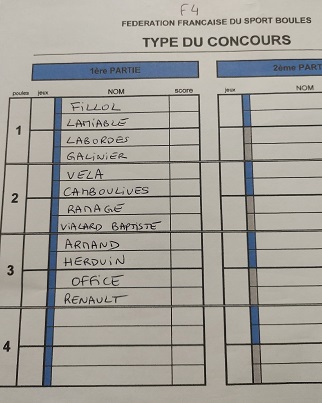 F4
FEDERATION FRANCAISE DU SPORT BOULES
TYPE DU CONCOURS
1ère PARTIE 2ème PART
poules jeux NOM score jeux NOM
1
FILLOL
LAMIABLE
LABORDES
GALINIER
2
VELA
CAMBOULIVES
RAMAGE
VIALARD BAPTISTE
3
ARMAND
HERDUIN
OFFICE
RENAULT
4